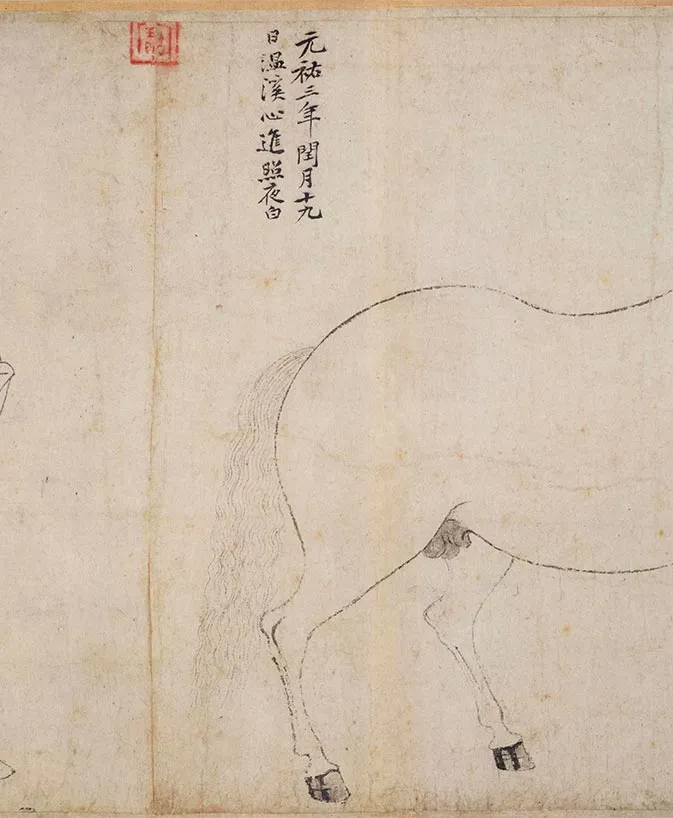 元祐三年閏月十九
日温溪心進照夜白